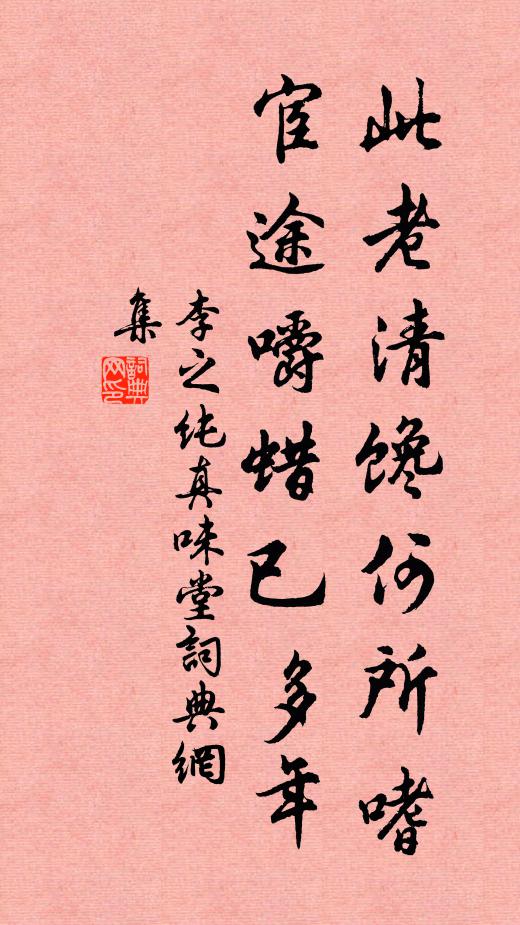 此老清馋何所嗜
宦途嚼蜡已多年
李之纯真味堂詞典網
集
詞典網印